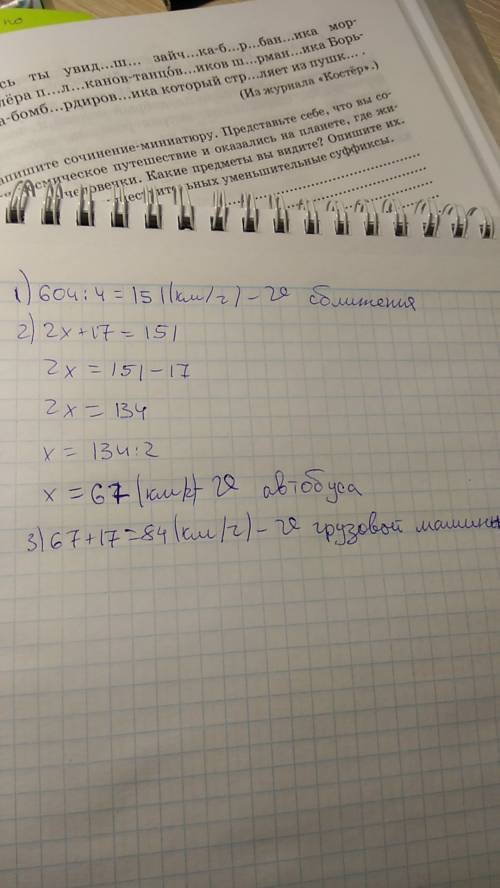 по
сь ты увид...ш... зайч...ка-б...р...бан...ика мор-
лёра п...л...канов-танцо́в...иков ш...рман...ика Борь-
а-бомб...рдиров...ика который стр...ляет из пушк... .
(Из журнала «Костёр».)
апишите сочинение-миниатюру. Представьте себе, что вы со-
смическое путешествие и оказались на планете, где жи-
человечки. Какие предметы вы видите? Опишите их.
ьных уменьшительные суффиксы.
1) 604:4=151(км/г) – υ сближения
2) 2x+17=151
2x=151-17
2x=134
x=134:2
x=67 (км/г) – υ автобуса
3) 67+17=84(км/г) – υ грузовой машины